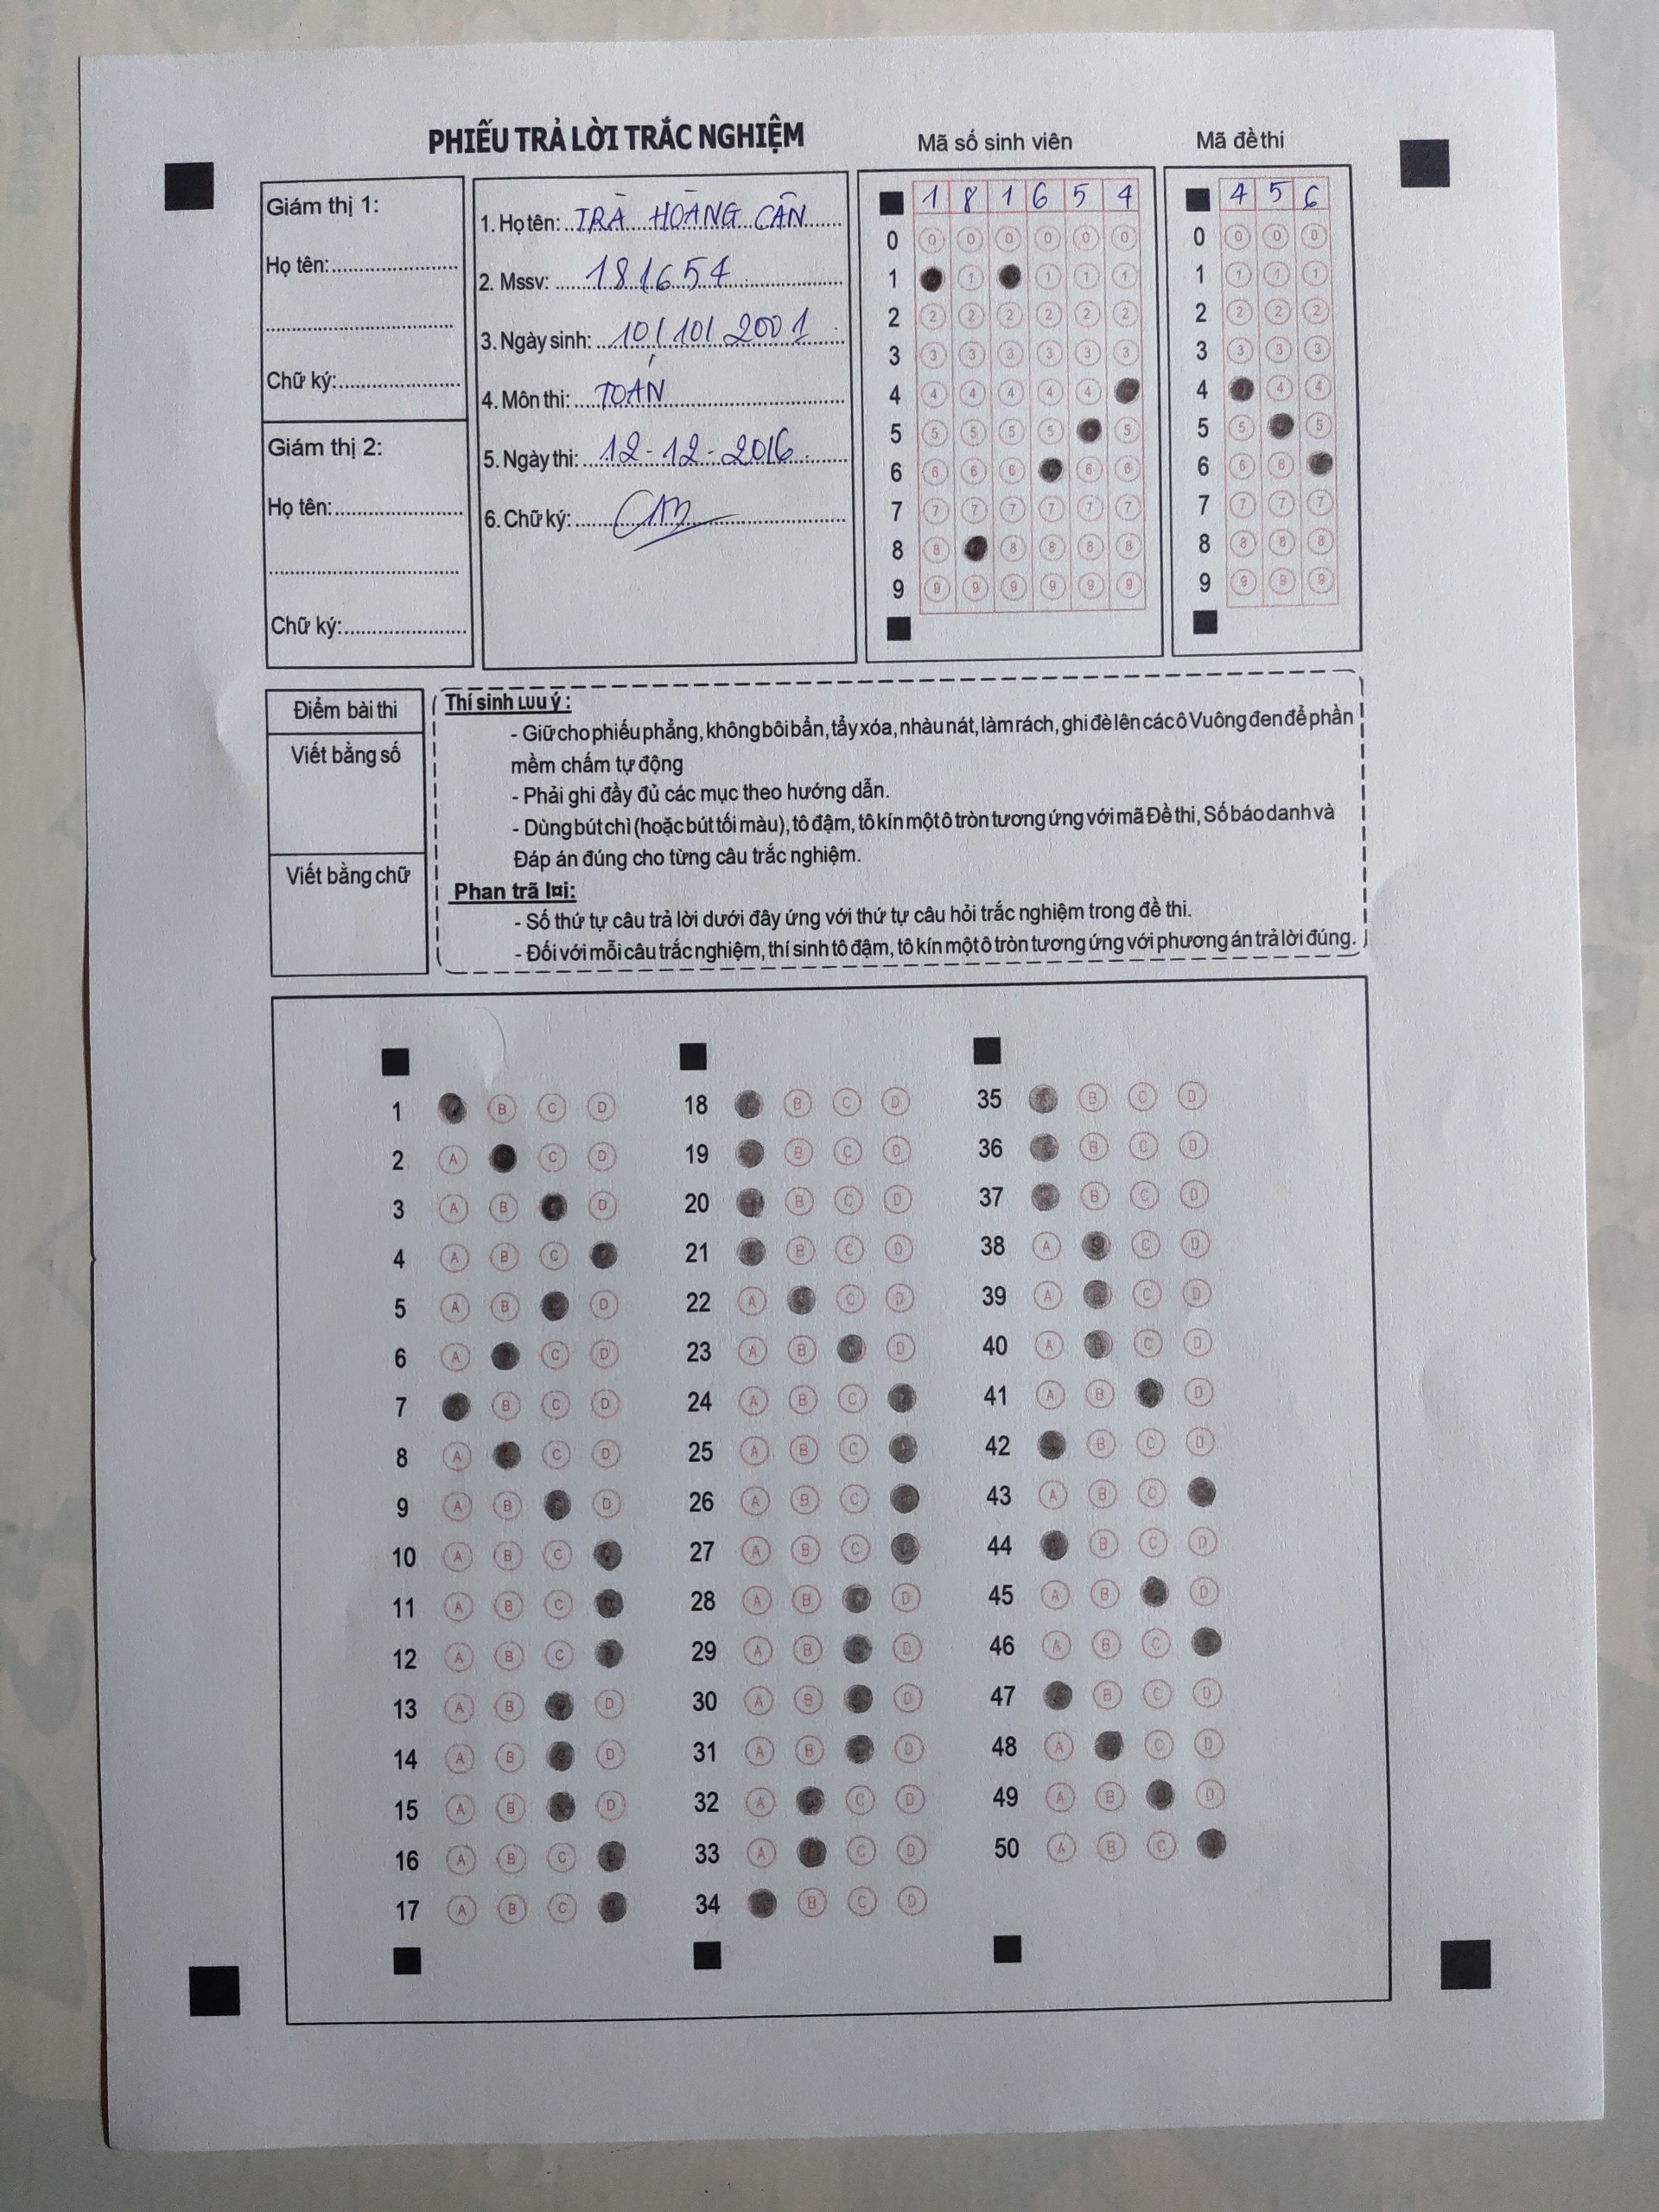 PHIẾU TRẢ LỜI TRẮC NGHIỆM
Mã số sinh viên
Mã đề thi
Giám thị 1:
Họ tên:
Chữ ký:
Giám thị 2:
Họ tên:
Chữ ký:
1. Họ tên: TRÀ HOÀNG CÂN
2. Mssv: 181654
3. Ngày sinh: 10/10/2001
4. Môn thi: TOÁN
5. Ngày thi: 12-12-2016
6. Chữ ký:
1 8 1 6 5 4
0 0 0 0 0 0 0
1 1 1 1 1
2 2 2 2 2 2 2
3 3 3 3 3 3 3
4 4 4 4 4 4
5 5 5 5 5 5
6 6 6 6 6 6
7 7 7 7 7 7 7
8 8 8 8 8 8
9 9 9 9 9 9 9
4 5 6
0 0 0 0
1 1 1 1
2 2 2 2
3 3 3 3
4 4 4
5 5 5
6 6 6
7 7 7 7
8 8 8 8
9 9 9 9
Điểm bài thi
Viết bằng số
Viết bằng chữ
Thí sinh LƯU ý :
- Giữ cho phiếu phẳng, không bôi bẩn, tẩy xóa, nhàu nát, làm rách, ghi đè lên các ô Vuông đen để phần
mềm chấm tự động
- Phải ghi đầy đủ các mục theo hướng dẫn.
- Dùng bút chì (hoặc bút tối màu), tô đậm, tô kín một ô tròn tương ứng với mã Đề thi, Số báo danh và
Đáp án đúng cho từng câu trắc nghiệm.
Phan trã l¤i:
- Số thứ tự câu trả lời dưới đây ứng với thứ tự câu hỏi trắc nghiệm trong đề thi.
- Đối với mỗi câu trắc nghiệm, thí sinh tô đậm, tô kín một ô tròn tương ứng với phương án trả lời đúng.
1 B C D
2 A C D
3 A B D
4 A B C
5 A B D
6 A C D
7 B C D
8 A C D
9 A B D
10 A B C
11 A B C
12 A B C
13 A B D
14 A B D
15 A B D
16 A B C
17 A B C
18 B C D
19 B C D
20 B C D
21 B C D
22 A C D
23 A B D
24 A B C
25 A B C
26 A B C
27 A B C
28 A B D
29 A B D
30 A B D
31 A B D
32 A C D
33 A C D
34 B C D
35 B C D
36 B C D
37 B C D
38 A C D
39 A C D
40 A C D
41 A B D
42 B C D
43 A B C
44 B C D
45 A B D
46 A B C
47 B C D
48 A C D
49 A B D
50 A B C